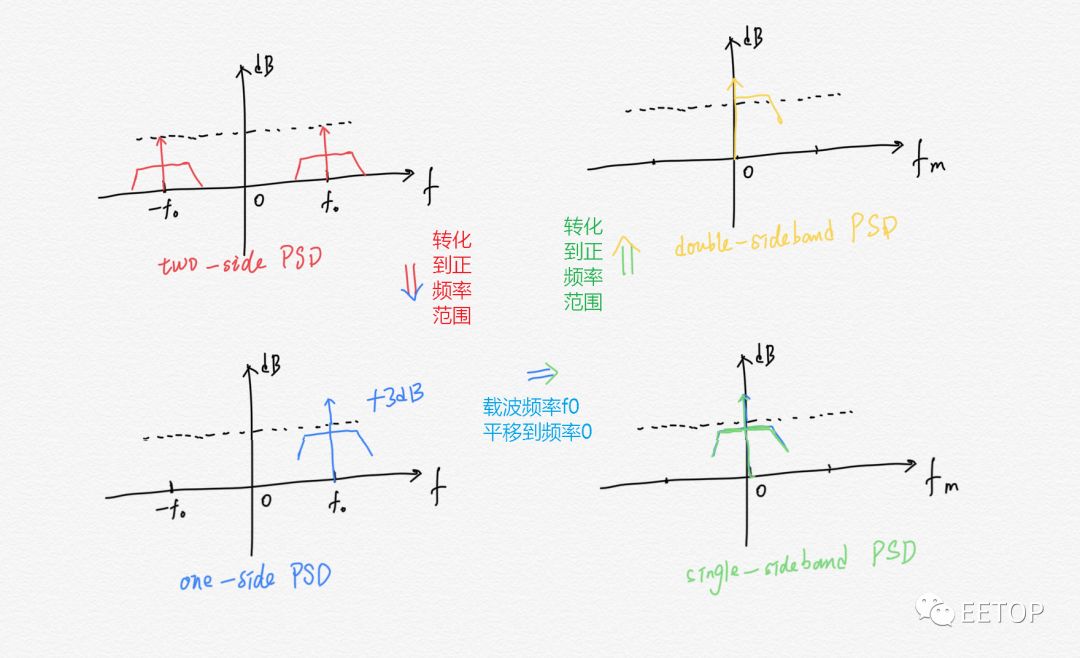 dB
f
-f₀
0
f₀
two-side PSD
转化
到正
频率
范围
dB
fm
0
double-sideband PSD
转化
到正
频率
范围
dB
+3dB
f
-f₀
0
f₀
one-side PSD
载波频率f0
平移到频率0
dB
fm
0
single-sideband PSD
EETOP